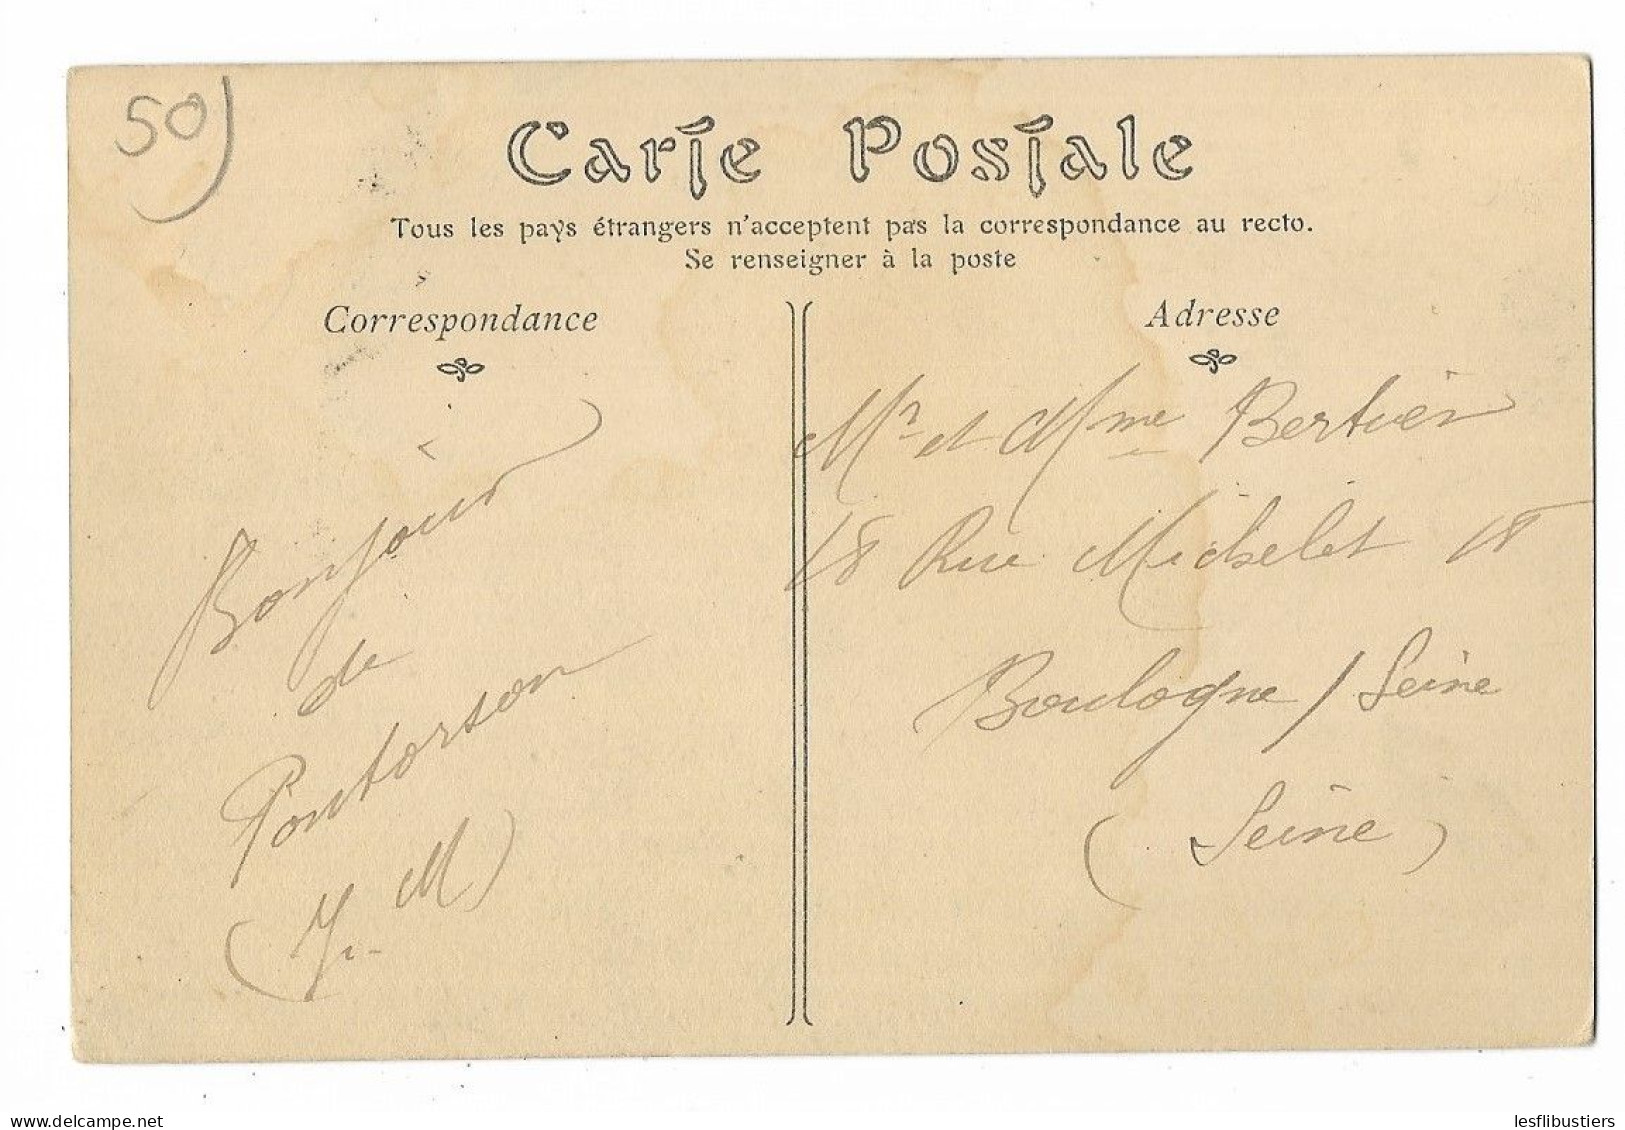 50)
Carte Postale
Tous les pays étrangers n'acceptent pas la correspondance au recto.
Se renseigner à la poste
Correspondance
Bonjour
de
Pontorson
(Y. M)
Adresse
Mr et Mme Bertier
18 Rue Michelet 18
Boulogne / Seine
(Seine)
delcampe.net
lesflibustiers